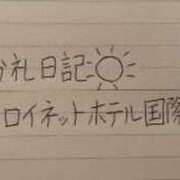 お礼日記☀
ロイネットホテル国際